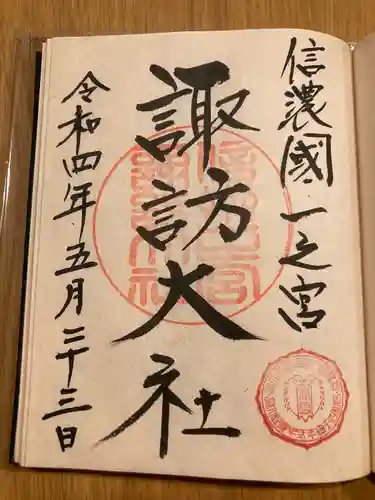 信濃國一之宮
諏訪大社
令和四年五月二十三日